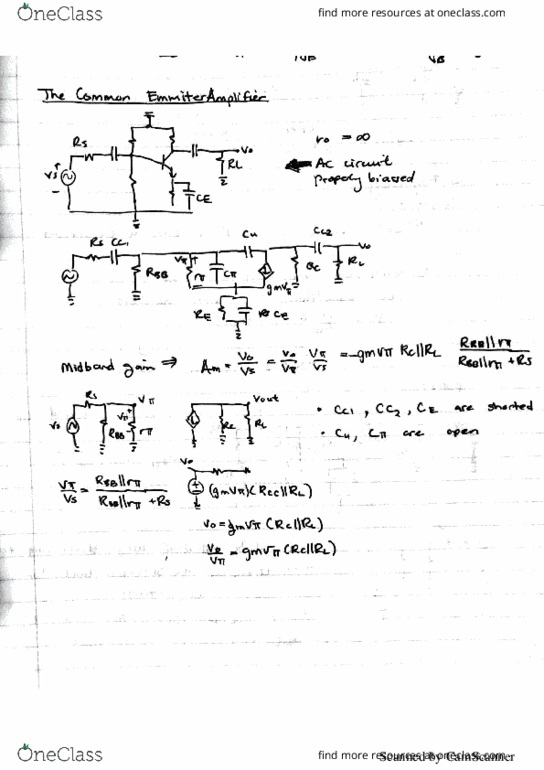 OneClass
find more resources at oneclass.com
The Common EmmiterAmplifier
Rs
Vo
RL
Vs
+
-
CE
ro = ∞
AC circuit
properly biassed
Rs CC1
RBB
Vπ +
rπ
Cπ
Cu
gmVπ
CC2
Vo
RC
RL
RE
CE
Midband gain ⇒ Am = Vo/Vs = Vo/Vπ Vπ/Vs = -gmVπ Rc||RL RBB||rπ / RBB||rπ + Rs
Rs
Vπ
Vs
RBB
Vπ +
rπ
Vout
Rc
RL
• CC1, CC2, CE are shorted
• Cu, Cπ are open
Vπ/Vs = RBB||rπ / RBB||rπ + Rs
Vo
(gmVπ)(Rcc||RL)
Vo = gmVπ (Rc||RL)
Vo/Vπ = gmVπ (Rc||RL)
OneClass
find more resources at oneclass.com
Scanned by CamScanner